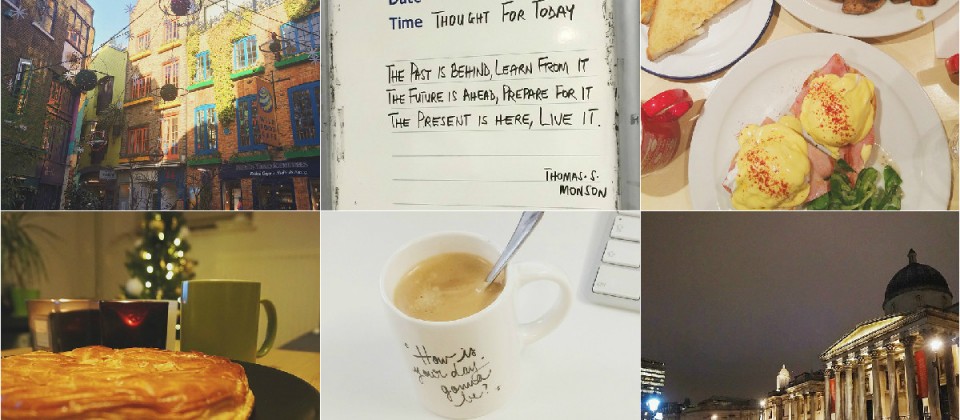 Date
Time THOUGHT FOR TODAY
THE PAST IS BEHIND, LEARN FROM IT
THE FUTURE IS AHEAD, PREPARE FOR IT
THE PRESENT IS HERE, LIVE IT.
THOMAS. S.
MONSON
"How is
your day
gonna
be?"